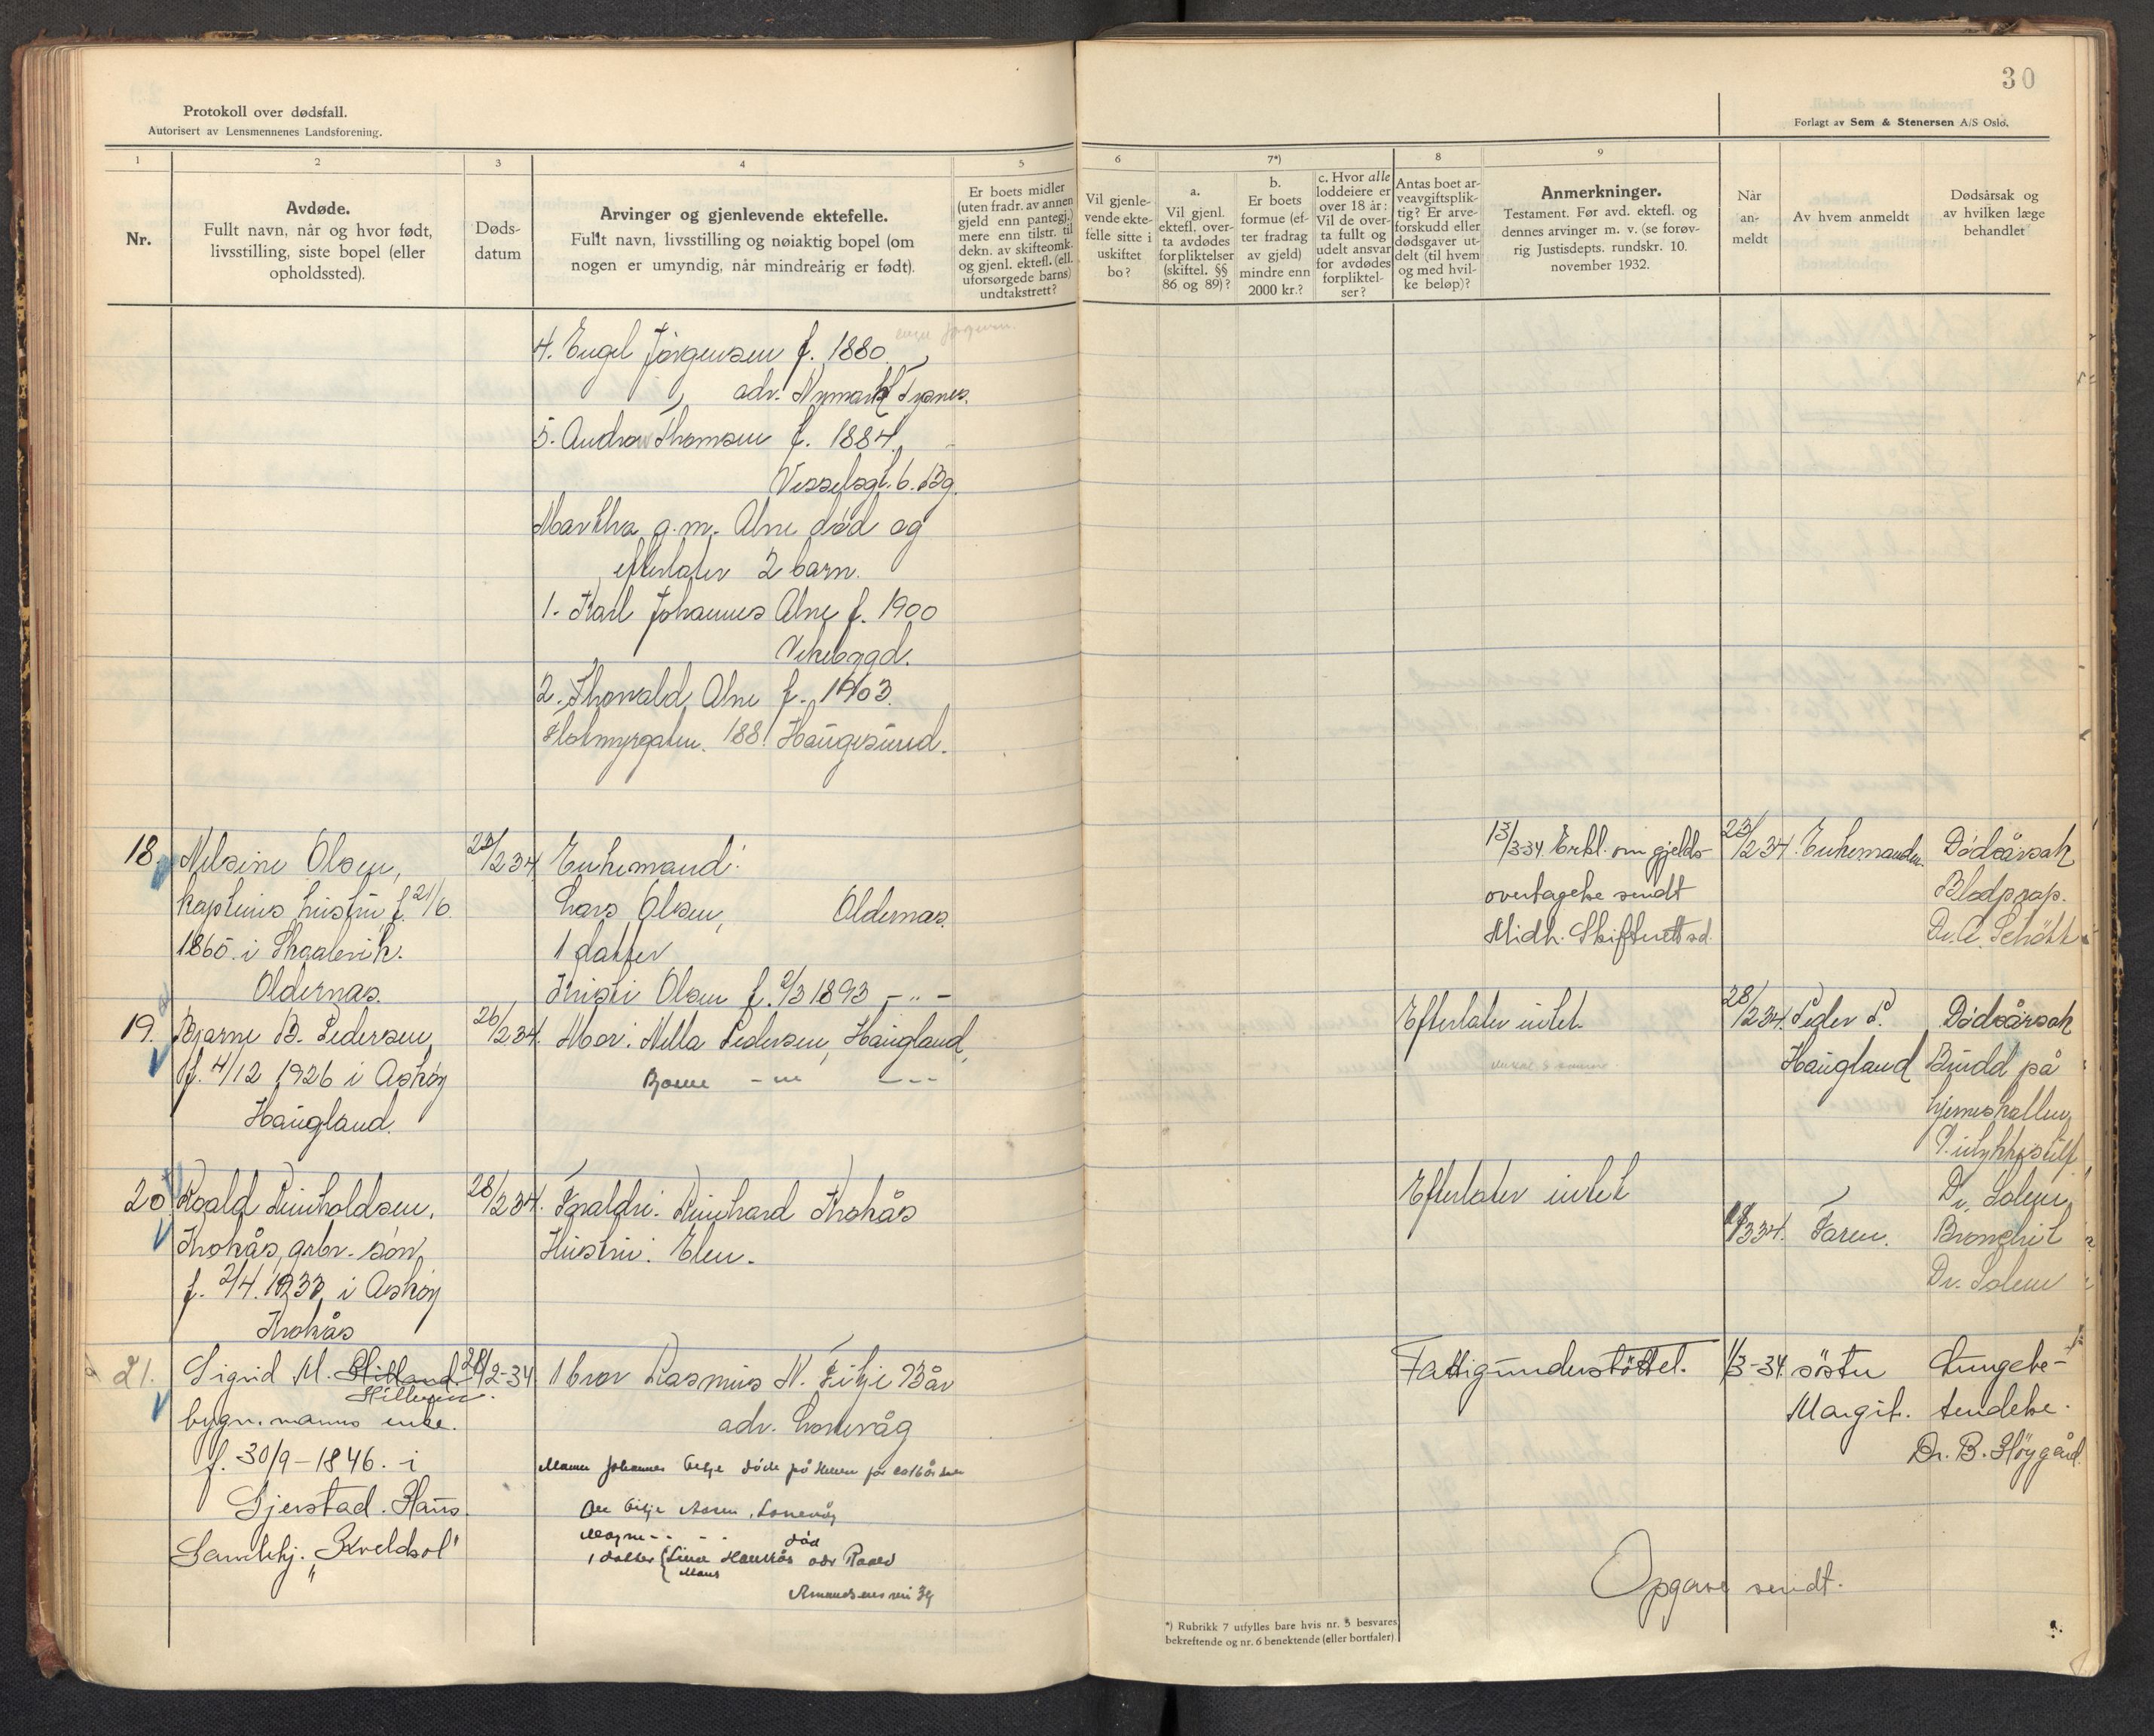 30
Protokoll over dødsfall.
Autorisert av Lensmennenes Landsforening.
Forlagt av Sem & Stenersen A/S Oslo.
1
2
3
4
5
6
7*)
8
9
Nr.
Avdøde.
Fullt navn, når og hvor født,
livsstilling, siste bopel (eller
opholdssted).
Døds-
datum
Arvinger og gjenlevende ektefelle.
Fullt navn, livsstilling og nøiaktig bopel (om
nogen er umyndig, når mindreårig er født).
Er boets midler
(uten fradr. av annen
gjeld enn pantegj.)
mere enn tilstr. til
dekn. av skifteomk.
og gjenl. ektefl. (ell.
uforsørgede barns)
undtakstrett?
Vil gjenle-
vende ekte-
felle sitte i
uskiftet
bo?
a.
Vil gjenl.
ektefl. over-
ta avdødes
forpliktelser
(skiftel. §§
86 og 89)?
b.
Er boets
formue (ef-
ter fradrag
av gjeld)
mindre enn
2000 kr.?
c. Hvor alle
loddeiere er
over 18 år:
Vil de over-
ta fullt og
udelt ansvar
for avdødes
forpliktel-
ser?
Antas boet ar-
veavgiftsplik-
tig? Er arve-
forskudd eller
dødsgaver ut-
delt (til hvem
og med hvil-
ke beløp)?
Anmerkninger.
Testament. Før avd. ektefl. og
dennes arvinger m. v. (se forøv-
rig Justisdepts. rundskr. 10.
november 1932.
Når
an-
meldt
Av hvem anmeldt
Dødsårsak og
av hvilken læge
behandlet
4. Engel Jørgensen f. 1880
adr. Nymark Tysnes.
5. Andrea Thomsen f. 1884
Vesselsgt. 6. Bg.
Martha g.m. Alne død og
efterlater 2 barn.
1. Karl Johannes Alne f. 1900
Vikebygd.
2. Thorvald Alne f. 1903.
188 Haugesund.
18. Nilsine Olsen,
kapteins hustru f. 21/6.
1865 i Skaalevik.
Oldernas.
23/2 34
Enkemand:
Lars Olsen, Oldernas.
1 datter
Kristi Olsen f. 2/3 1893 - " -
13/3 34. Erkl. om gjelds-
overtagelse sendt
Midh. Skifterett s.d.
23/2 34. Enkemanden. Dødsårsak
Blodprop.
Dr. A. Schøtt
19. Bjarne B. Pedersen,
f. 4/12 1926 i Askøy
Haugland.
26/2 34.
Mor: Nella Pedersen, Haugland,
Efterlater intet
28/2 34. Peder P. Dødsårsak
Haugland Brudd på
hjerneskallen
Dr. Solem
20 Roald Reinholdsen,
Krokås, arbr. søn,
f. 2/4. 1933 i Askøy
Krokås
28/2 34.
Foreldre: Reinhard Krokås
Hustru: Elen.
Efterlater intet
3 34. Faren. Bronchit
Dr. Solem
21. Sigrid M. Hilland
bygn.manns enke.
f. 30/9 - 1846. i
Gjerstad. Haus.
Gamlehj. "Kveldsol"
28/2-34
1 bror Rasmus N. Fitje Bår
adr. Lonevåg
Fattigunderstøttet.
1/3-34 søster Lungebe-
Margit. tendelse.
Dr. B. Høygård.
Opgave sendt.
*) Rubrikk 7 utfylles bare hvis nr. 5 besvares
bekreftende og nr. 6 benektende (eller bortfaler)